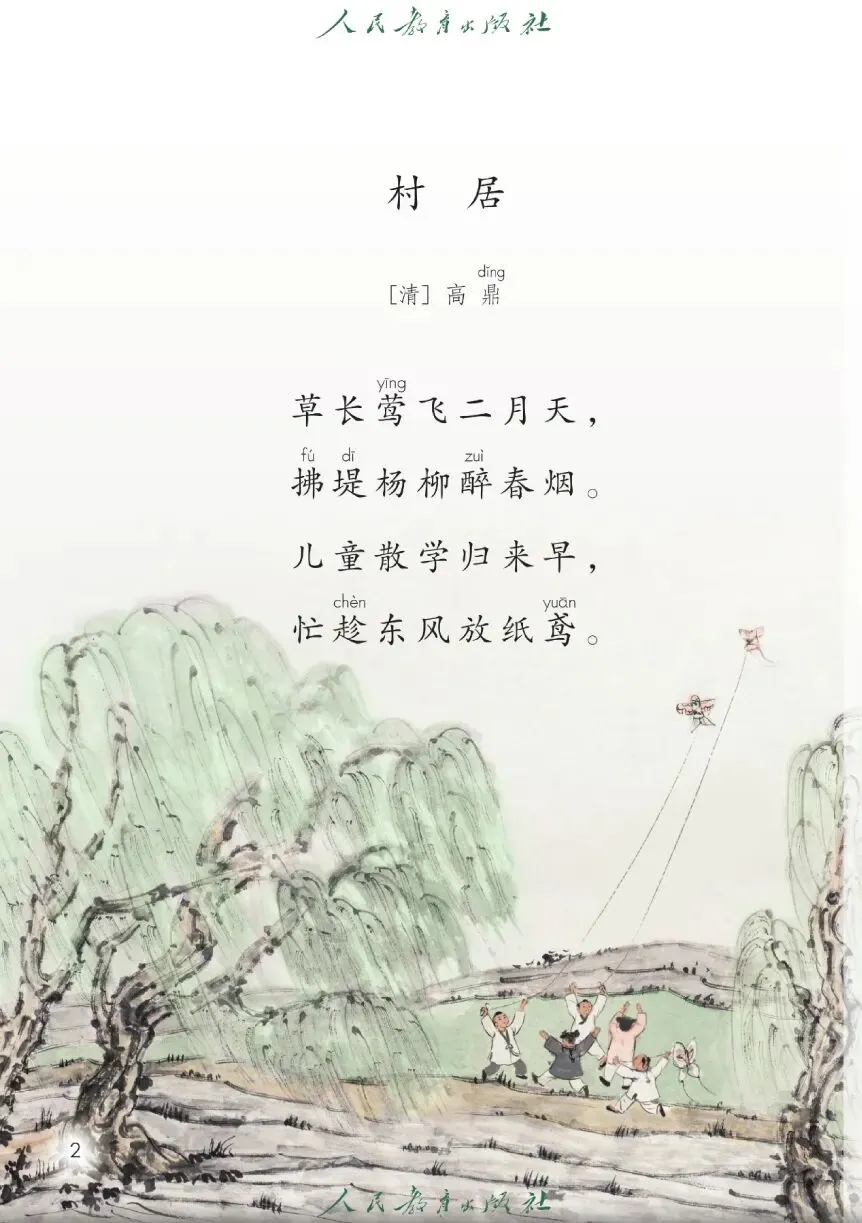 人民教育出版社
村 居
dǐng
[清] 高 鼎
yīng
草长莺飞二月天，
fú dī zuì
拂堤杨柳醉春烟。
儿童散学归来早，
chèn yuān
忙趁东风放纸鸢。
2
人民教育出版社